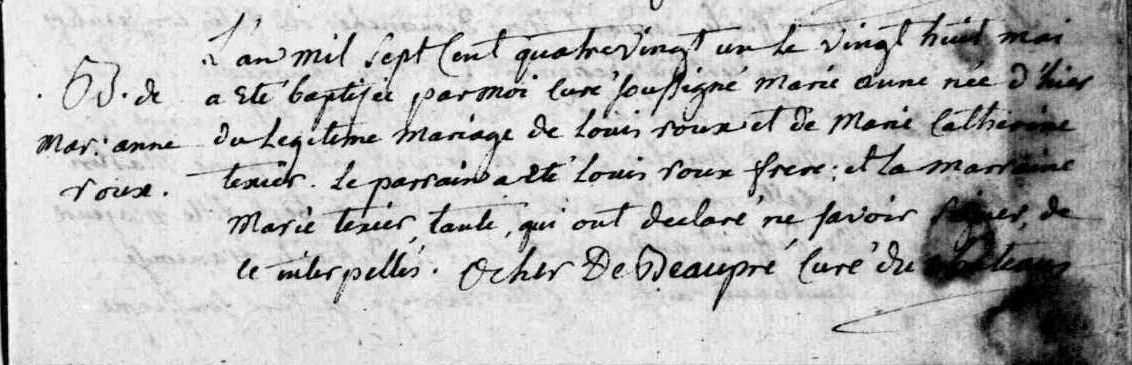 B. de
Mari anne
roux.
L'an mil sept cent quatre vingt un le vingt huit mai
a eté baptisée par moi curé soussigné marie anne née d'hier
du legitime mariage de louis roux et de marie catherine
texier. le parrain a eté louis roux frere; et la marraine
marie texier, tante, qui ont declaré ne savoir signer, de
ce interpellés. Ocher De Beaupré curé du chateau